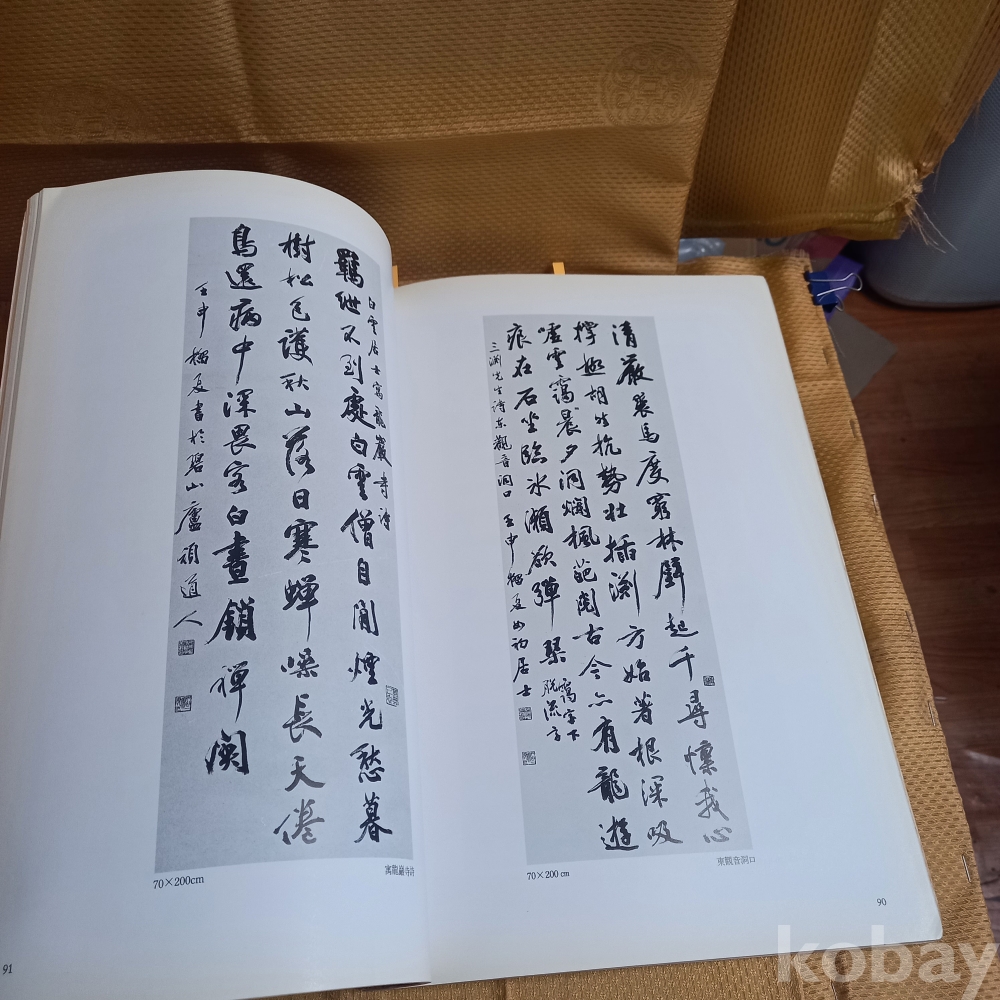 清嚴裝馬度窮林壁起千尋懍我心
胡然抗勢壯插渊方始著根深吸
嘘雲靄晨夕洞爛楓葩閱古今亦有龍遊
痕在石坐臨氷瀨欲彈琹
字下
脱流
三渊先生诗東觀音洞口 壬申榴夏如初居士
東觀音洞口
70×200 cm
90
白雲居士寓龍巖寺詩
羈紲不到處白雲僧自閒煙光愁暮
樹松色護秋山落日寒蟬噪長天倦
鳥還病中深畏客白晝鎖禪関
壬申榴夏書於碧山廬頑道人
寓龍巖寺詩
70×200cm
91
kobay